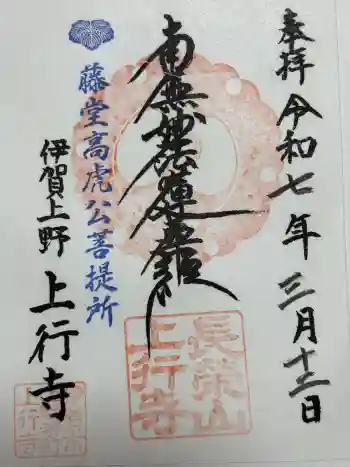 奉拝 令和七年三月十二日
南無妙法蓮華経
藤堂高虎公菩提所
伊賀上野 上行寺
長栄山
上行寺